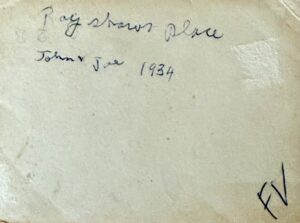 Ray Shaws place
John & Joe 1934
FV